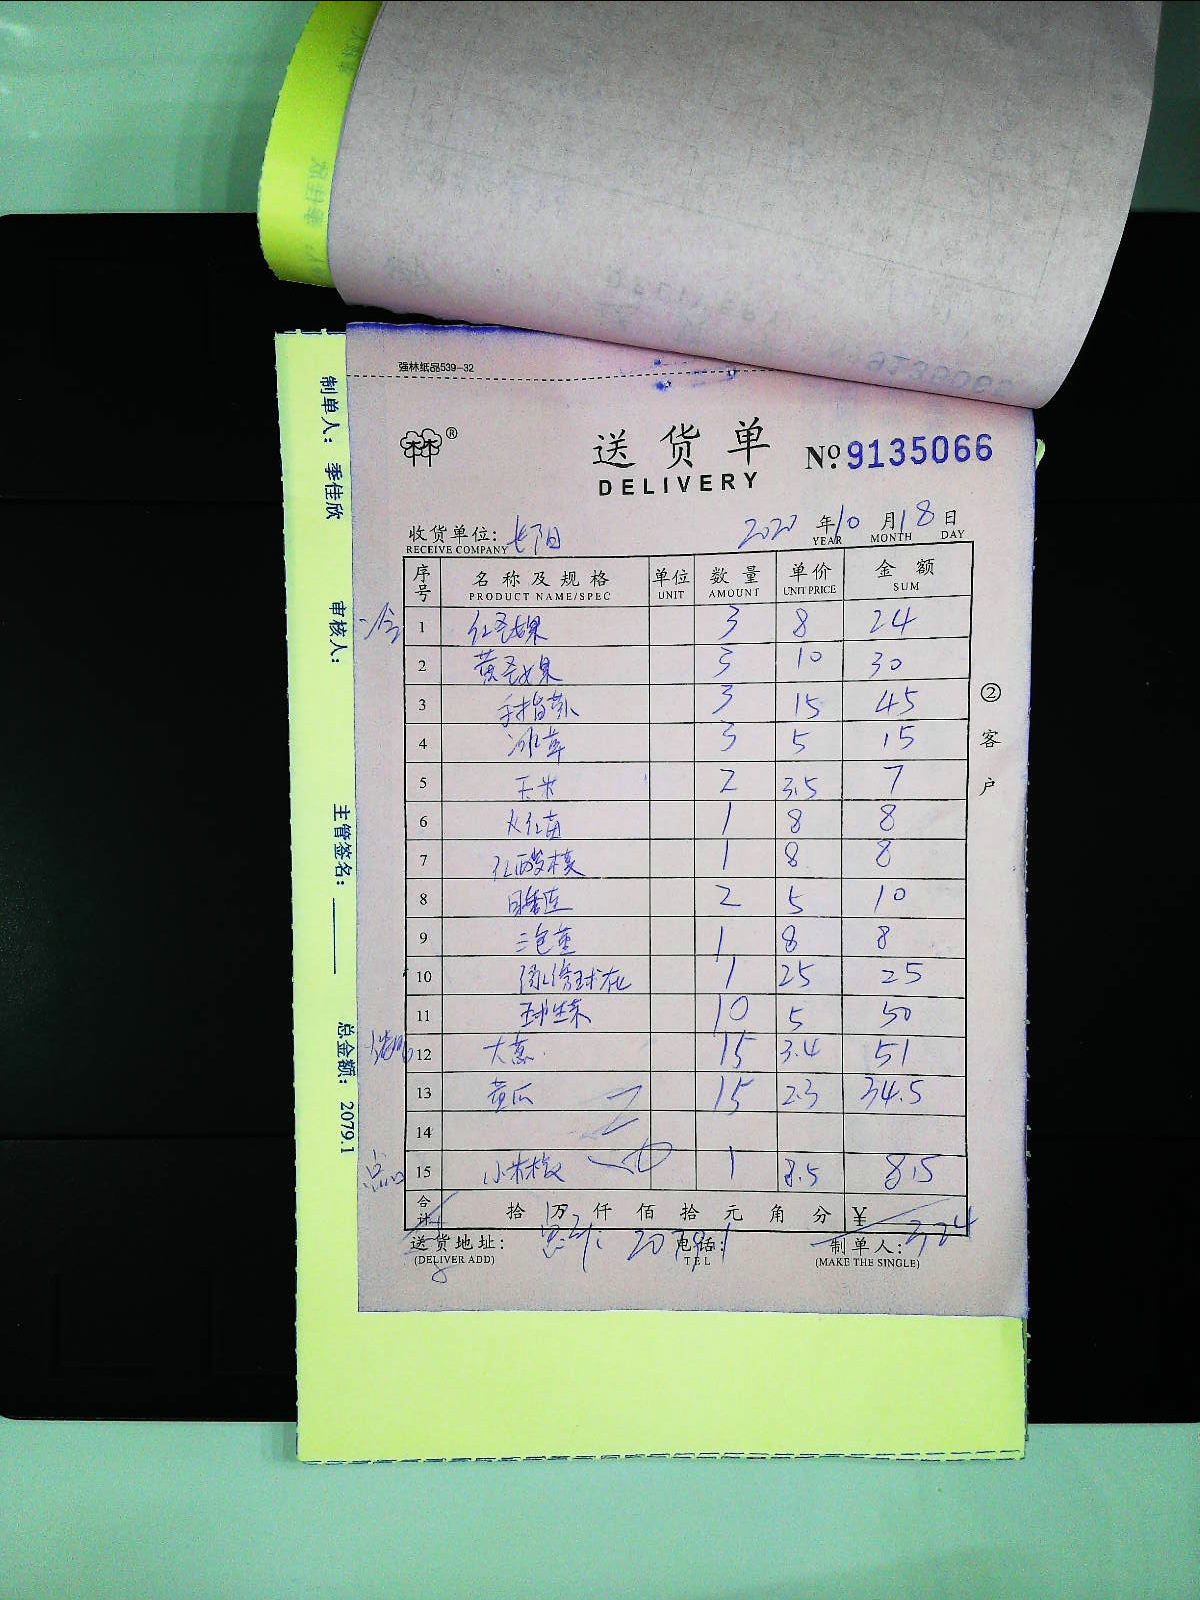 强林纸品539-32
制单人： 季佳欣 审核人： 主管签名： 总金额： 2079.1
送货单
DELIVERY
№ 9135066
收货单位： 长阳 2020 年 10 月 18 日
RECEIVE COMPANY YEAR MONTH DAY
序号 名称及规格 单位 数量 单价 金额
PRODUCT NAME/SPEC UNIT AMOUNT UNIT PRICE SUM
1 红圣女果 3 8 24
2 黄圣女果 3 10 30
3 手指萝卜 3 15 45
4 冰草 3 5 15
5 玉米 2 3.5 7
6 火红苗 1 8 8
7 红酸模 1 8 8
8 2 5 10
9 1 8 8
10 1 25 25
11 球生菜 10 5 50
12 大葱 15 3.4 51
13 黄瓜 15 2.3 34.5
14
15 小米椒 1 8.5 8.5
合计 拾 万 仟 佰 拾 元 角 分 ¥
送货地址： 总计: 2079.1 电话： 制单人：
(DELIVER ADD) TEL (MAKE THE SINGLE)
② 客户